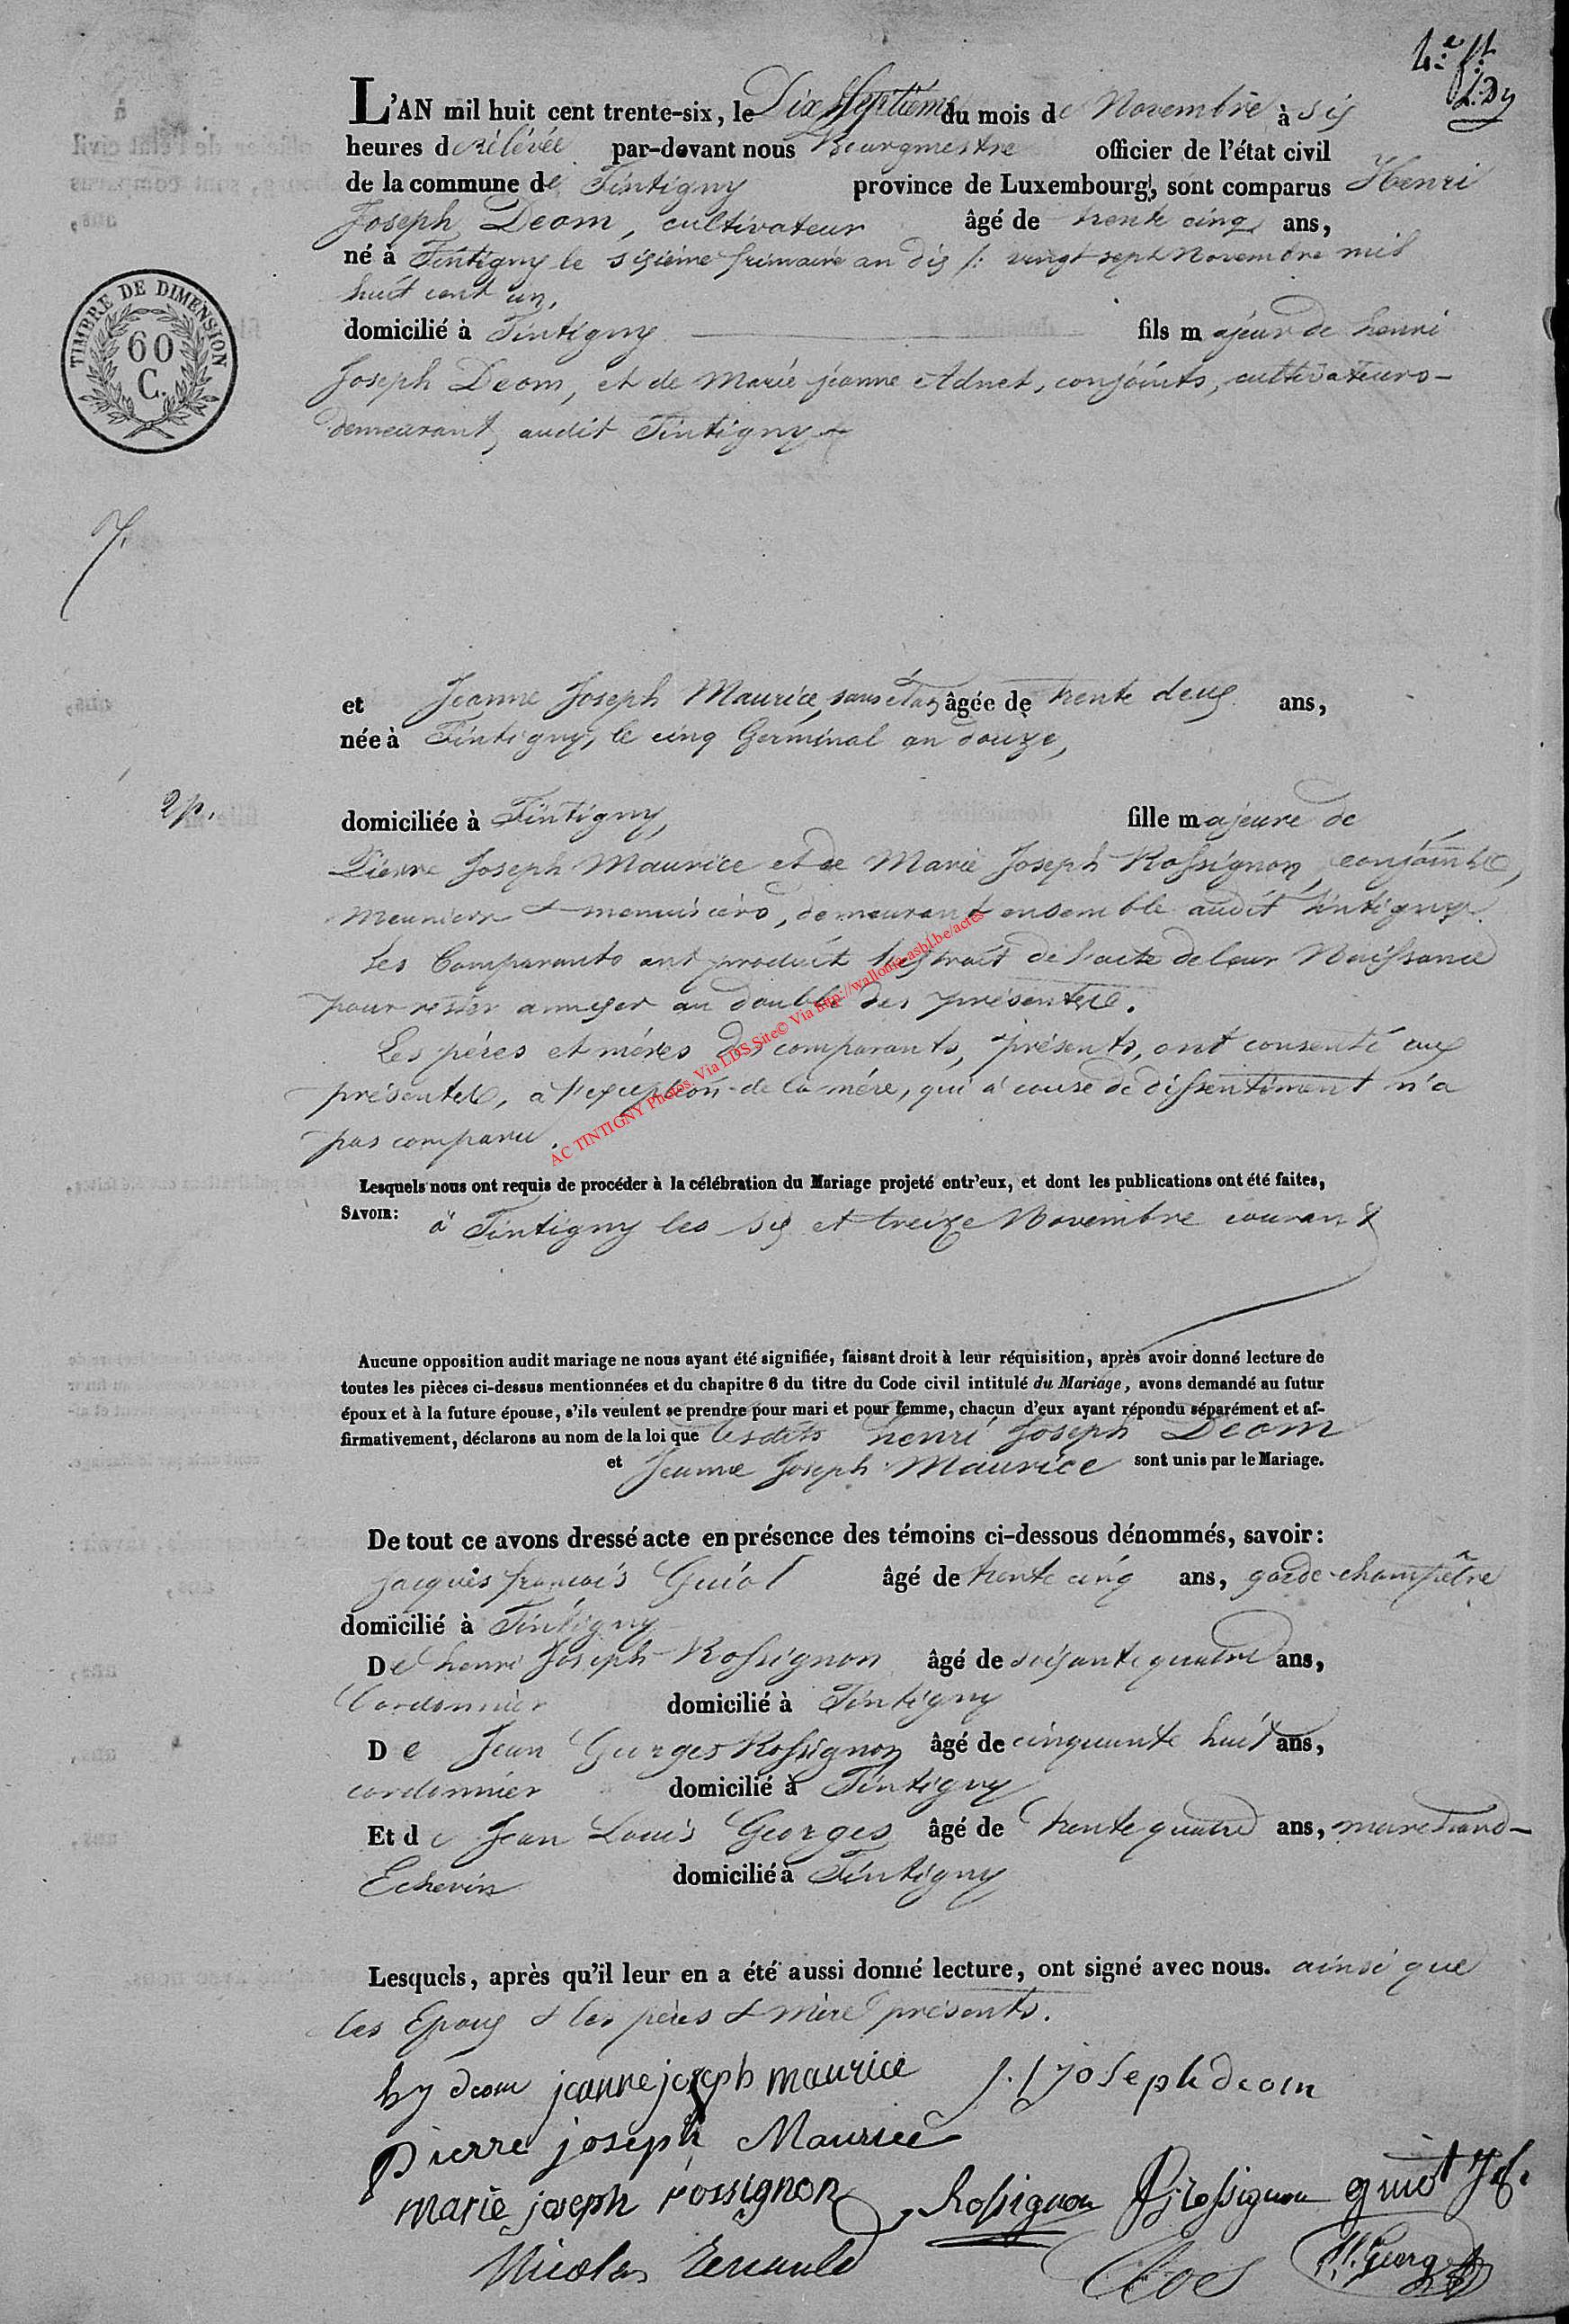 4e ft
L'AN mil huit cent trente-six, le Dix Septième du mois de Novembre à six
heures de rélévée par-devant nous Bourgmestre officier de l'état civil
de la commune de Tintigny province de Luxembourg, sont comparus Henri
Joseph Deom, cultivateur âgé de trente cinq ans,
né à Tintigny le sixième frimaire an dix /: vingt sept Novembre mil
huit cent un,
domicilié à Tintigny fils majeur de henri
Joseph Deom, et de Marie jeanne Adnet, conjoints, cultivateurs
demeurant audit Tintigny
TIMBRE DE DIMENSION
60
C.
7.
et Jeanne Joseph Maurice, sans état âgée de trente deux ans,
née à Tintigny, le cinq Germinal an douze,
2p.
domiciliée à Tintigny, fille majeure de
Pierre Joseph Maurice et de Marie Joseph Rossignon, conjoints,
meuniers & menuisiers, demeurant ensemble audit Tintigny.
Les Comparants ont produit l'extrait de l'acte de leur Naissance
pour rester annexer au double des présentes.
Les pères et mères des comparants, présents, ont consenti aux
présentes, à l'exception de la mère, qui à cause de dissentiment n'a
pas comparu.
AC TINTIGNY Photos. Via LDS Site© Via http://wallonia-asbl.be/actes
Lesquels nous ont requis de procéder à la célébration du Mariage projeté entr'eux, et dont les publications ont été faites,
SAVOIR: à Tintigny les six et treize Novembre courant
Aucune opposition audit mariage ne nous ayant été signifiée, faisant droit à leur réquisition, après avoir donné lecture de
toutes les pièces ci-dessus mentionnées et du chapitre 6 du titre du Code civil intitulé du Mariage, avons demandé au futur
époux et à la future épouse, s'ils veulent se prendre pour mari et pour femme, chacun d'eux ayant répondu séparément et af-
firmativement, déclarons au nom de la loi que lesdits henri Joseph Deom
et Jeanne Joseph Maurice sont unis par le Mariage.
De tout ce avons dressé acte en présence des témoins ci-dessous dénommés, savoir:
jacques françois Guiot âgé de trente cinq ans, garde-champêtre
domicilié à Tintigny
De henri Joseph Rossignon âgé de soixante quatre ans,
Cordonnier domicilié à Tintigny
De Jean Georges Rossignon âgé de cinquante huit ans,
cordonnier domicilié à Tintigny
Et de Jean Louis Georges âgé de trente quatre ans, marchand-
Echevin domicilié à Tintigny
Lesquels, après qu'il leur en a été aussi donné lecture, ont signé avec nous. ainsi que
les Epoux & les pères & mère présents.
hj deom jeanne joseph maurice joseph deom
pierre joseph Maurice
marie joseph rossignon Rossignon Rossignon guiot
Nicolas Renauld Georg